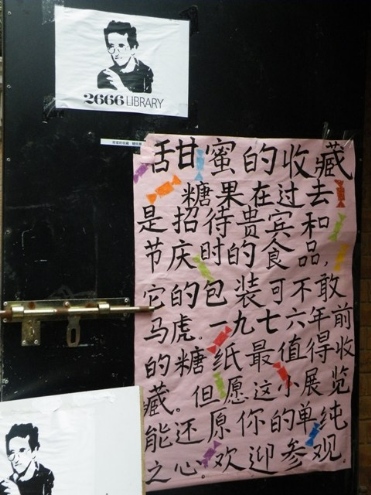 2666 LIBRARY
甜蜜的收藏
糖果在过去
是招待贵宾和
节庆时的食品，
它的包装可不敢
马虎。一九七六年前
的糖纸最值得收
藏。但愿这小展览
能还原你的单纯
之心。欢迎参观